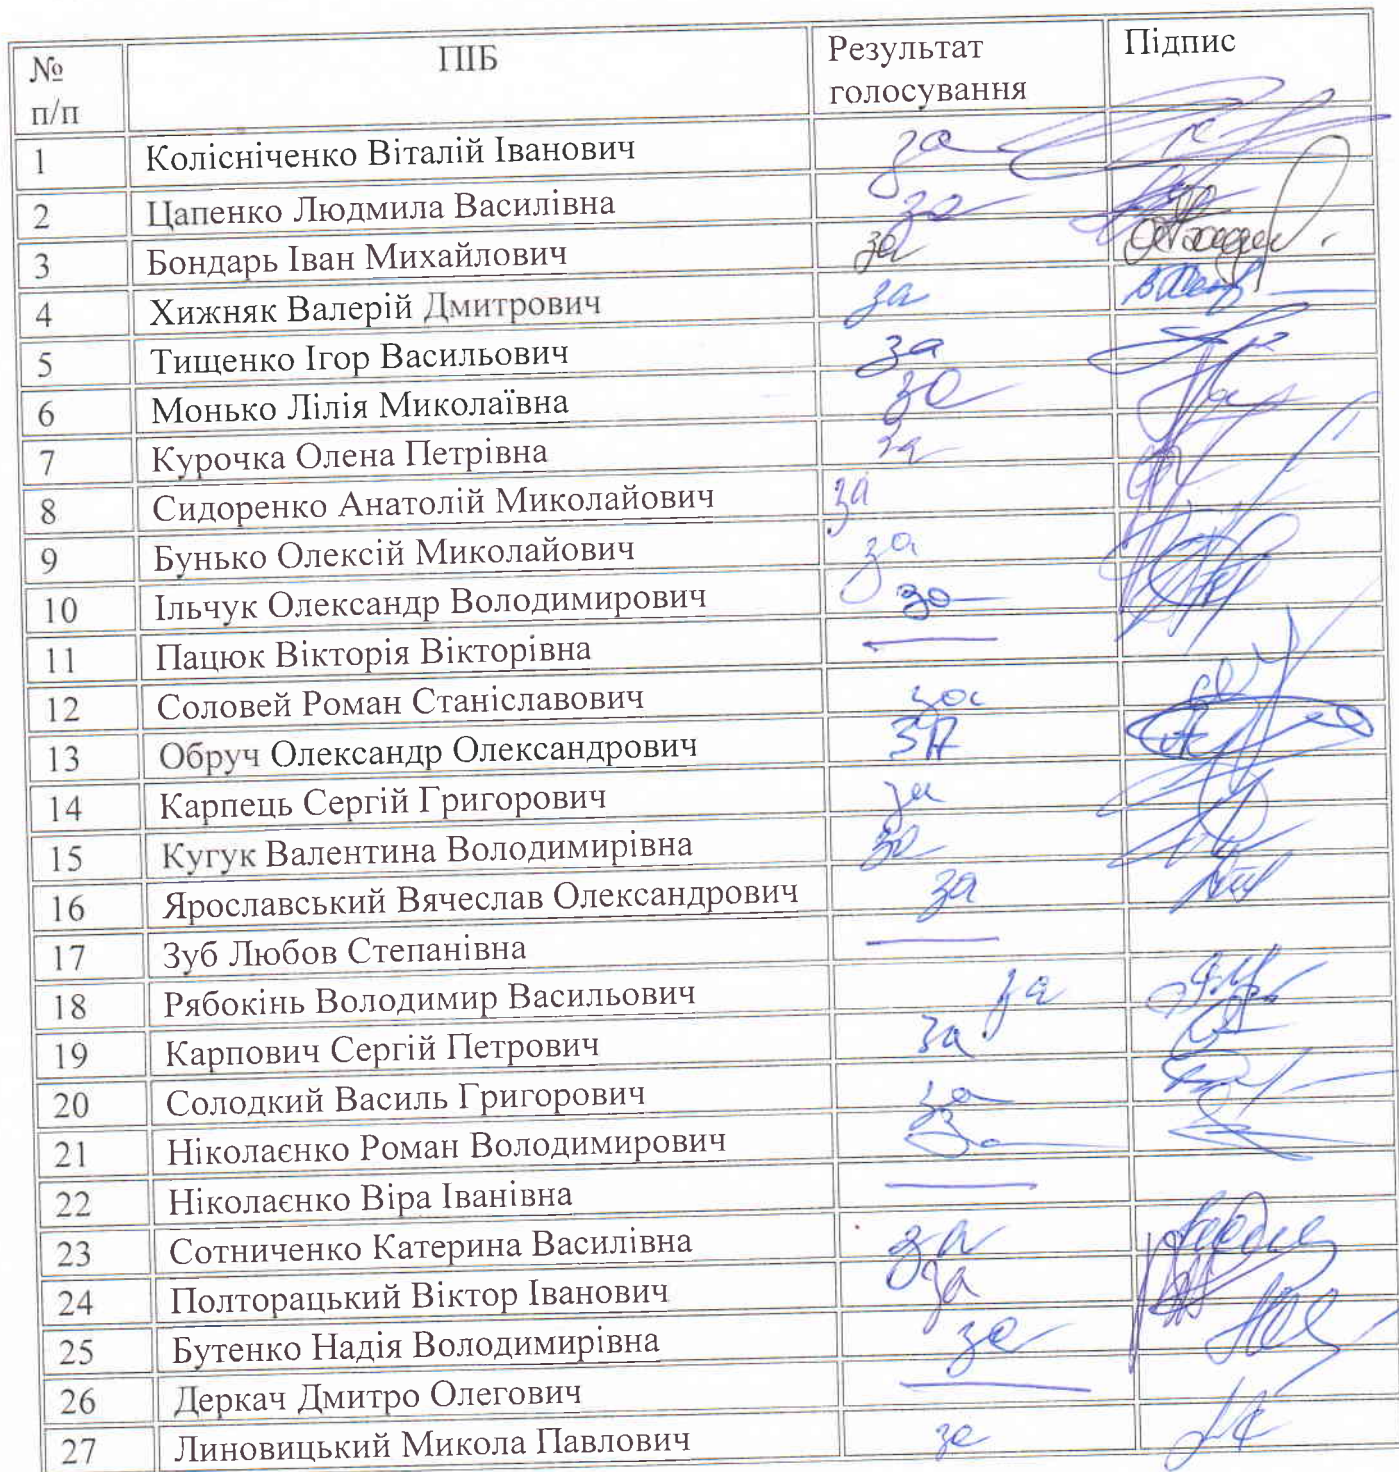 № п/п ПІБ Результат голосування Підпис
1 Колісніченко Віталій Іванович за
2 Цапенко Людмила Василівна за
3 Бондарь Іван Михайлович за
4 Хижняк Валерій Дмитрович за
5 Тищенко Ігор Васильович за
6 Монько Лілія Миколаївна за
7 Курочка Олена Петрівна за
8 Сидоренко Анатолій Миколайович за
9 Бунько Олексій Миколайович за
10 Ільчук Олександр Володимирович за
11 Пацюк Вікторія Вікторівна —
12 Соловей Роман Станіславович за
13 Обруч Олександр Олександрович ЗА
14 Карпець Сергій Григорович за
15 Кугук Валентина Володимирівна за
16 Ярославський Вячеслав Олександрович за
17 Зуб Любов Степанівна —
18 Рябокінь Володимир Васильович за
19 Карпович Сергій Петрович за
20 Солодкий Василь Григорович за
21 Ніколаєнко Роман Володимирович за
22 Ніколаєнко Віра Іванівна —
23 Сотниченко Катерина Василівна за
24 Полторацький Віктор Іванович за
25 Бутенко Надія Володимирівна за
26 Деркач Дмитро Олегович —
27 Линовицький Микола Павлович за